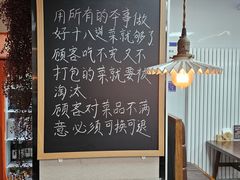 用所有的本事做
好十八道菜就够了
顾客吃不完又不
打包的菜就要被
淘汰
顾客对菜品不满
意必须可换可退